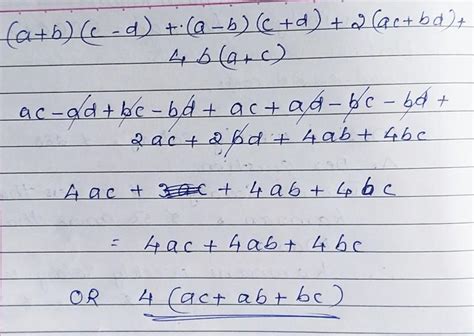 (a+b)(c-d) + (a-b)(c+d) + 2(ac+bd) +
4b(a+c)
ac-ad+bc-bd+ac+ad-bc-bd+
2ac+2bd+4ab+4bc
4ac + + 4ab + 4bc
= 4ac + 4ab + 4bc
OR 4(ac+ab+bc)